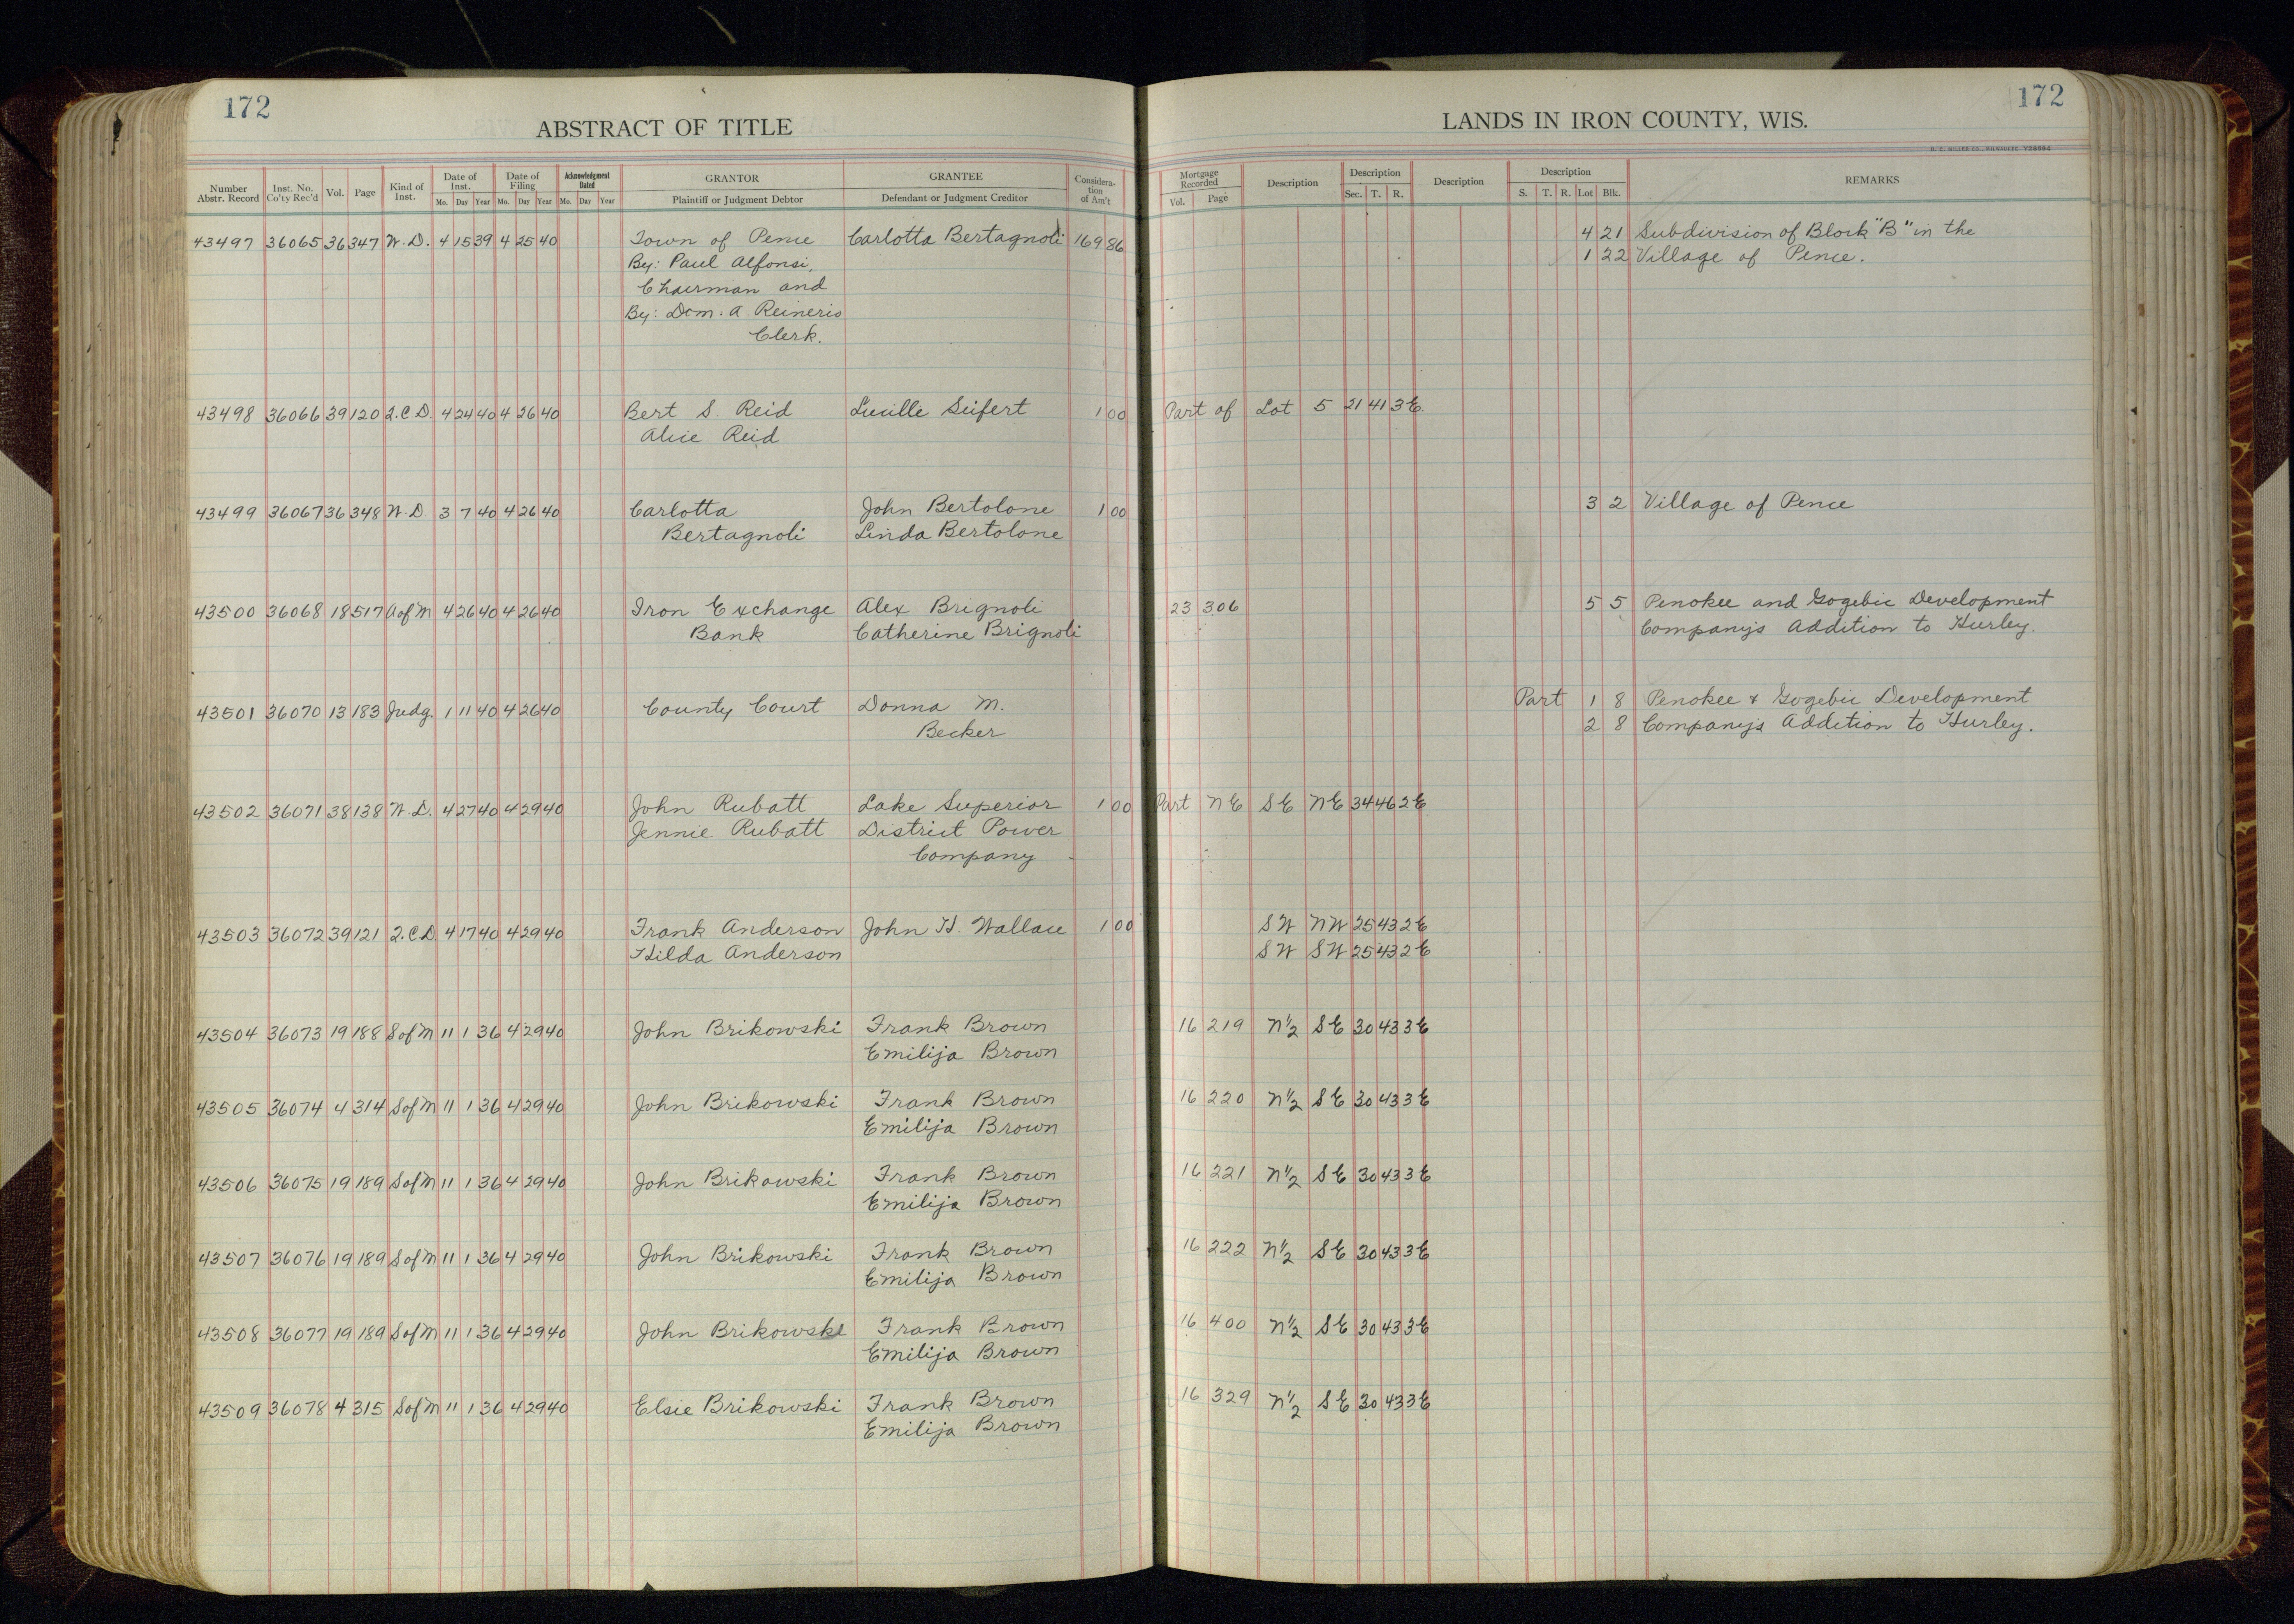 172
172
ABSTRACT OF TITLE
LANDS IN IRON COUNTY, WIS.
H. C. MILLER CO., MILWAUKEE
Number Abstr. Record Inst. No. Co'ty Rec'd Vol. Page Kind of Inst. Date of Inst. Mo. Day Year Date of Filing Mo. Day Year Acknowledgment Dated Mo. Day Year GRANTOR Plaintiff or Judgment Debtor GRANTEE Defendant or Judgment Creditor Consideration of Am't Mortgage Recorded Vol. Page Description Description Sec. T. R. Description Description S. T. R. Lot Blk. REMARKS
43497 36065 36 347 W.D. 4 15 39 4 25 40 Town of Pence Carlotta Bertagnoli 169 86 4 21 Subdivision of Block "B" in the
By: Paul Alfonsi, 1 22 Village of Pence.
Chairman and
By: Dom. A. Reineris
Clerk.
43498 36066 39 120 Q.C.D. 4 24 40 4 26 40 Bert S. Reid Lucille Seifert 1 00 Part of Lot 5 21 41 3E.
Alice Reid
43499 36067 36 348 W.D. 3 7 40 4 26 40 Carlotta John Bertolone 1 00 3 2 Village of Pence
Bertagnoli Linda Bertolone
43500 36068 18 517 A of M 4 26 40 4 26 40 Iron Exchange Alex Brignoli 23 306 5 5 Penokee and Gogebic Development
Bank Catherine Brignoli Company's Addition to Hurley.
43501 36070 13 183 Judg. 1 11 40 4 26 40 County Court Donna M. Part 1 8 Penokee & Gogebic Development
Becker 2 8 Company's Addition to Hurley.
43502 36071 38 138 W.D. 4 27 40 4 29 40 John Rubatt Lake Superior 1 00 Part NE SE NE 34 46 2E
Jennie Rubatt District Power
Company
43503 36072 39 121 Q.C.D. 4 17 40 4 29 40 Frank Anderson John H. Wallace 1 00 SW NW 25 43 2E
Hilda Anderson SW SW 25 43 2E
43504 36073 19 188 S of M 11 1 36 4 29 40 John Brikowski Frank Brown 16 219 N½ SE 30 43 3E
Emilija Brown
43505 36074 4 314 S of M 11 1 36 4 29 40 John Brikowski Frank Brown 16 220 N½ SE 30 43 3E
Emilija Brown
43506 36075 19 189 S of M 11 1 36 4 29 40 John Brikowski Frank Brown 16 221 N½ SE 30 43 3E
Emilija Brown
43507 36076 19 189 S of M 11 1 36 4 29 40 John Brikowski Frank Brown 16 222 N½ SE 30 43 3E
Emilija Brown
43508 36077 19 189 S of M 11 1 36 4 29 40 John Brikowski Frank Brown 16 400 N½ SE 30 43 3E
Emilija Brown
43509 36078 4 315 S of M 11 1 36 4 29 40 Elsie Brikowski Frank Brown 16 329 N½ SE 30 43 3E
Emilija Brown